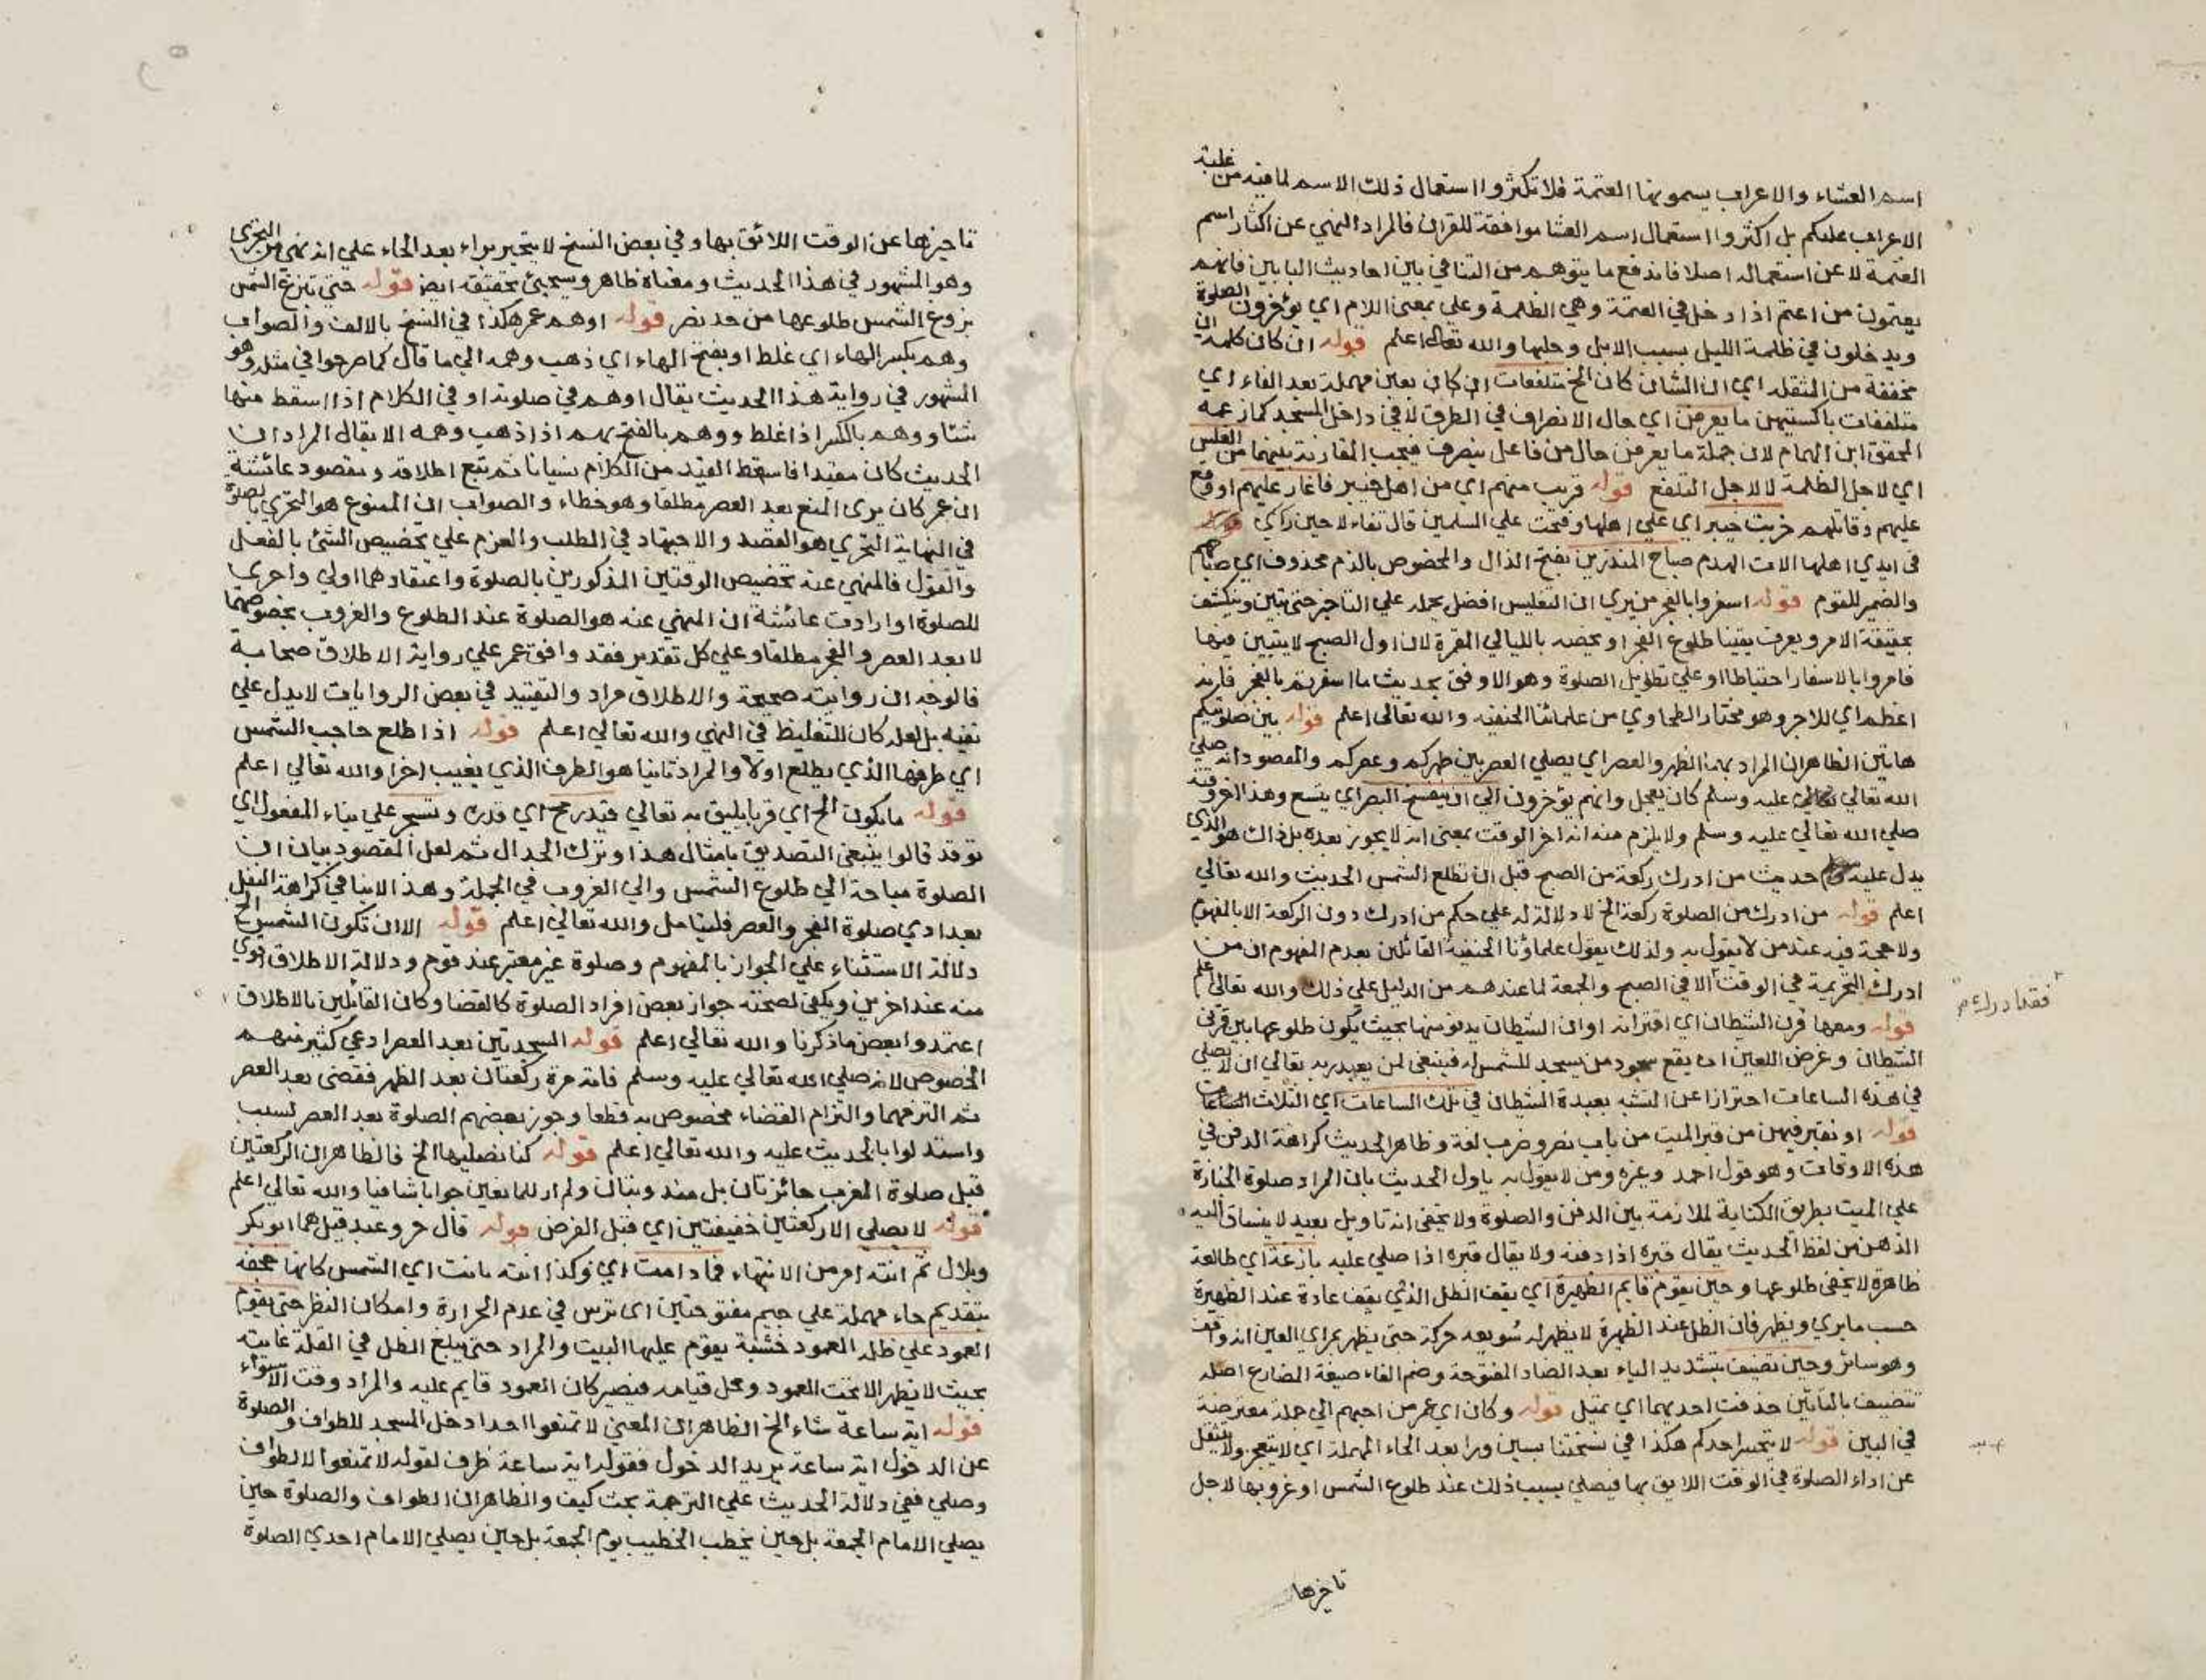 اسم العشاء والاعراب يسمونها العتمة فلا تكثروا استعمال ذلك الاسم لما فيه من غلبة
الاعراب عليكم بل اكثروا استعمال اسم العشا موافقة للقران فالمراد النهي عن اكثار اسم
العتمة لا عن استعماله اصلا فاندفع ما يتوهم من التنافي بين احاديث البابين فانهم
يعتمون من اعتم اذا دخل في العتمة وهي الظلمة وعلي بمعني اللام اي يؤخرون الصلوة
ويدخلون في ظلمة الليل بسبب الابل وحلبها والله تعالى اعلم قوله ان كان كلمة ان
مخففة من المثقلة اي ان الشان كان الخ متلفعات ان كان بعين مهملة بعد الفاء اي
متلففات باكسيتهن ما يعرفن اي حال الانصراف في الطرق لا في داخل المسجد كما زعمه
المحقق ابن الهمام لان جملة ما يعرفن حال من فاعل ينصرف فيجب المقارنة بينهما من الغلس
اي لاجل الظلمة لا لاجل التلفع قوله قريب منهم اي من اهل خيبر فاغار عليهم اوقع
عليهم وقاتلهم خربت خيبر اي علي اهلها وفتحت علي المسلمين قال تفاءلا حين راي
في ايدي اهلها الات الهدم صباح المنذرين بفتح الذال والمخصوص بالذم محذوف اي صباحهم
والضمير للقوم قوله اسفروا بالفجر من يري ان التغليس افضل يحمله علي التاخير حتى يتبين وينكشف
بحقيقة الامر ويعرف يقينا طلوع الفجر او يخصه بالليالي المقمرة لان اول الصبح لا يتبين فيها
فامروا بالاسفار احتياطا او علي تطويل الصلوة وهو الاوفق بحديث ما اسفرتم بالفجر فانه
اعظم اي للاجر وهو مختار الطحاوي من علمائنا الحنفية والله تعالى اعلم قوله بين صلوتيكم
هاتين الظاهر ان المراد بهما الظهر والعصر اي يصلي العصر بين ظهركم وعصركم والمقصود انه صلي
الله تعالي عليه وسلم كان يعجل وانهم يؤخرون الي ان ينفسخ البصر اي يتسع وهذا اخر وقته
صلي الله تعالي عليه وسلم ولا يلزم منه انه اخر الوقت بمعني انه لا يجوز بعده بل ذاك هو الذي
يدل عليه حديث من ادرك ركعة من الصبح قبل ان تطلع الشمس الحديث والله تعالي
اعلم قوله من ادرك من الصلوة ركعة الخ لا دلالة له علي حكم من ادرك دون الركعة الا بالمفهوم
ولا حجة فيه عند من لا يقول به ولذلك يقول علماؤنا الحنفية القائلين بعدم المفهوم ان من
ادرك التحريمة في الوقت الا في الصبح والجمعة لما عندهم من الدليل علي ذلك والله تعالى اعلم
فقد ادرك
قوله ومعها قرن الشيطان اي اقترانه او ان الشيطان يدنو منها بحيث يكون طلوعها بين قرني
الشيطان وغرض اللعين ان يقع سجود من يسجد للشمس له فينبغي لمن يعبد ربه تعالي ان لا يصلي
في هذه الساعات احترازا عن التشبه بعبدة الشيطان في تلك الساعات اي الثلاث الساعات
قوله او نقبر فيهن من قبر الميت من باب نصر وضرب لغة وظاهر الحديث كراهة الدفن في
هذه الاوقات وهو قول احمد وغيره ومن لا يقول به ياول الحديث بان المراد صلوة الجنازة
علي الميت بطريق الكناية للملازمة بين الدفن والصلوة ولا يخفى انه تاويل بعيد لا ينساق اليه
الذهن من لفظ الحديث يقال قبره اذا دفنه ولا يقال قبره اذا صلي عليه بازغة اي طالعة
ظاهرة لا يخفى طلوعها وحين يقوم قايم الظهيرة اي يقف الظل الذي يقف عادة عند الظهيرة
حسب ما يري ويظهر فان الظل عند الظهيرة لا يظهر له سويعه حركة حتى يظهر بمراي العين انه واقف
وهو سائر وحين تضيف بتشديد الياء بعد الضاد المفتوحة وضم الفاء صيغة المضارع اصله
تتضيف بالتائين حذفت احديهما اي تميل قوله وكان اي عمر من احبهم الي جملة معترضة
في البين قوله لا يتحسر احدكم هكذا في نسختنا بسين ورا بعد الحاء المهملة اي لا يتعجز ولا يتثقل
عن اداء الصلوة في الوقت اللايق بها فيصلي بسبب ذلك عند طلوع الشمس او غروبها لاجل
تاخيرها
تاخيرها عن الوقت اللائق بها وفي بعض النسخ لا يتحير براء بعد الحاء علي انه نهي من التحري
وهو المشهور في هذا الحديث ومعناه ظاهر وسيجيئ تحقيقه ايضا قوله حتى تبزغ الشمس
بزوغ الشمس طلوعها من حد نصر قوله اوهم عمر هكذا في النسخ بالالف والصواب
وهم بكسر الهاء اي غلط او بفتح الهاء اي ذهب وهمه الي ما قال كما صرحوا في مثله وهو
المشهور في رواية هذا الحديث يقال اوهم في صلوته او في الكلام اذا اسقط منها
شئا ووهم بالكسر اذا غلط ووهم بالفتح يهم اذا ذهب وهمه الا يقال المراد ان
الحديث كان مقيدا فاسقط القيد من الكلام نسيانا ثم تبع اطلاقه ومقصود عائشة
ان عمر كان يرى المنع بعد العصر مطلقا وهو خطاء والصواب ان الممنوع هو التحري بالصلوة
في النهاية التحري هو القصد والاجتهاد في الطلب والعزم علي تخصيص الشئ بالفعل
والقول فالمنهي عنه تخصيص الوقتين المذكورين بالصلوة واعتقادهما اولي واحرى
للصلوة او ارادت عائشة ان المنهي عنه هو الصلوة عند الطلوع والغروب بخصوصهما
لا بعد العصر والفجر مطلقا وعلي كل تقدير فقد وافق عمر علي رواية الاطلاق صحابة
فالوجه ان روايته صحيحة والاطلاق مراد والتقييد في بعض الروايات لا يدل علي
نفيه بل لعله كان للتغليظ في النهي والله تعالي اعلم قوله اذا طلع حاجب الشمس
اي طرفها الذي يطلع اولا والمراد ثانيا هو الطرف الذي يغيب اخرا والله تعالي اعلم
قوله ما يكون الخ اي قربا يليق به تعالي قيد رمح اي قدره وتسجر علي بناء المفعول اي
توقد قالوا ينبغي التصديق بامثال هذا وترك الجدال ثم لعل المقصود بيان ان
الصلوة مباحة الي طلوع الشمس والي الغروب في الجملة وهذا لا ينافي كراهة النفل
بعد ادي صلوة الفجر والعصر فليتامل والله تعالي اعلم قوله الا ان تكون الشمس الخ
دلالة الاستثناء علي الجواز بالمفهوم وصلوة غير معتبر عند قوم ودلالة الاطلاق اقوي
منه عند اخرين ويكفي لصحته جواز بعض افراد الصلوة كالقضا وكان القائلين بالاطلاق
اعتمدوا بعض ما ذكرنا والله تعالي اعلم قوله السجدتين بعد العصر ادعي كثير منهم
الخصوص لانه صلي الله تعالي عليه وسلم فاته مرة ركعتان بعد الظهر فقضى بعد العصر
ثم التزمهما والتزام القضاء مخصوص به قطعا وجوز بعضهم الصلوة بعد العصر لسبب
واستدلوا بالحديث عليه والله تعالي اعلم قوله كنا نصليها الخ فالظاهر ان الركعتين
قبل صلوة المغرب جائزتان بل مندوبتان ولم ار للمانعين جوابا شافيا والله تعالي اعلم
قوله لا يصلي الا ركعتين خفيفتين اي قبل الفرض قوله قال حر وعبد قيل هما ابو بكر
وبلال ثم انته امر من الانتهاء فما دامت اي وكذا انته ما دامت اي الشمس كانها حجفة
بتقديم حاء مهملة علي جيم مفتوحتين اى ترس في عدم الحرارة وامكان النظر حتى يقوم
العمود علي ظله العمود خشبة يقوم عليها البيت والمراد حتى يبلغ الظل في القلة غايته
بحيث لا يظهر الا تحت العمود ومحل قيامه فيصير كان العمود قايم عليه والمراد وقت الاستواء
قوله اية ساعة شاء الخ الظاهر ان المعني لا تمنعوا احدا دخل المسجد للطواف والصلوة
عن الدخول اية ساعة يريد الدخول فقوله اية ساعة ظرف لقوله لا تمنعوا لا لطواف
وصلي ففي دلالة الحديث علي الترجمة بحث كيف والظاهر ان الطواف والصلوة حين
يصلي الامام الجمعة بل حين يخطب الخطيب يوم الجمعة بل حين يصلي الامام احدي الصلوة